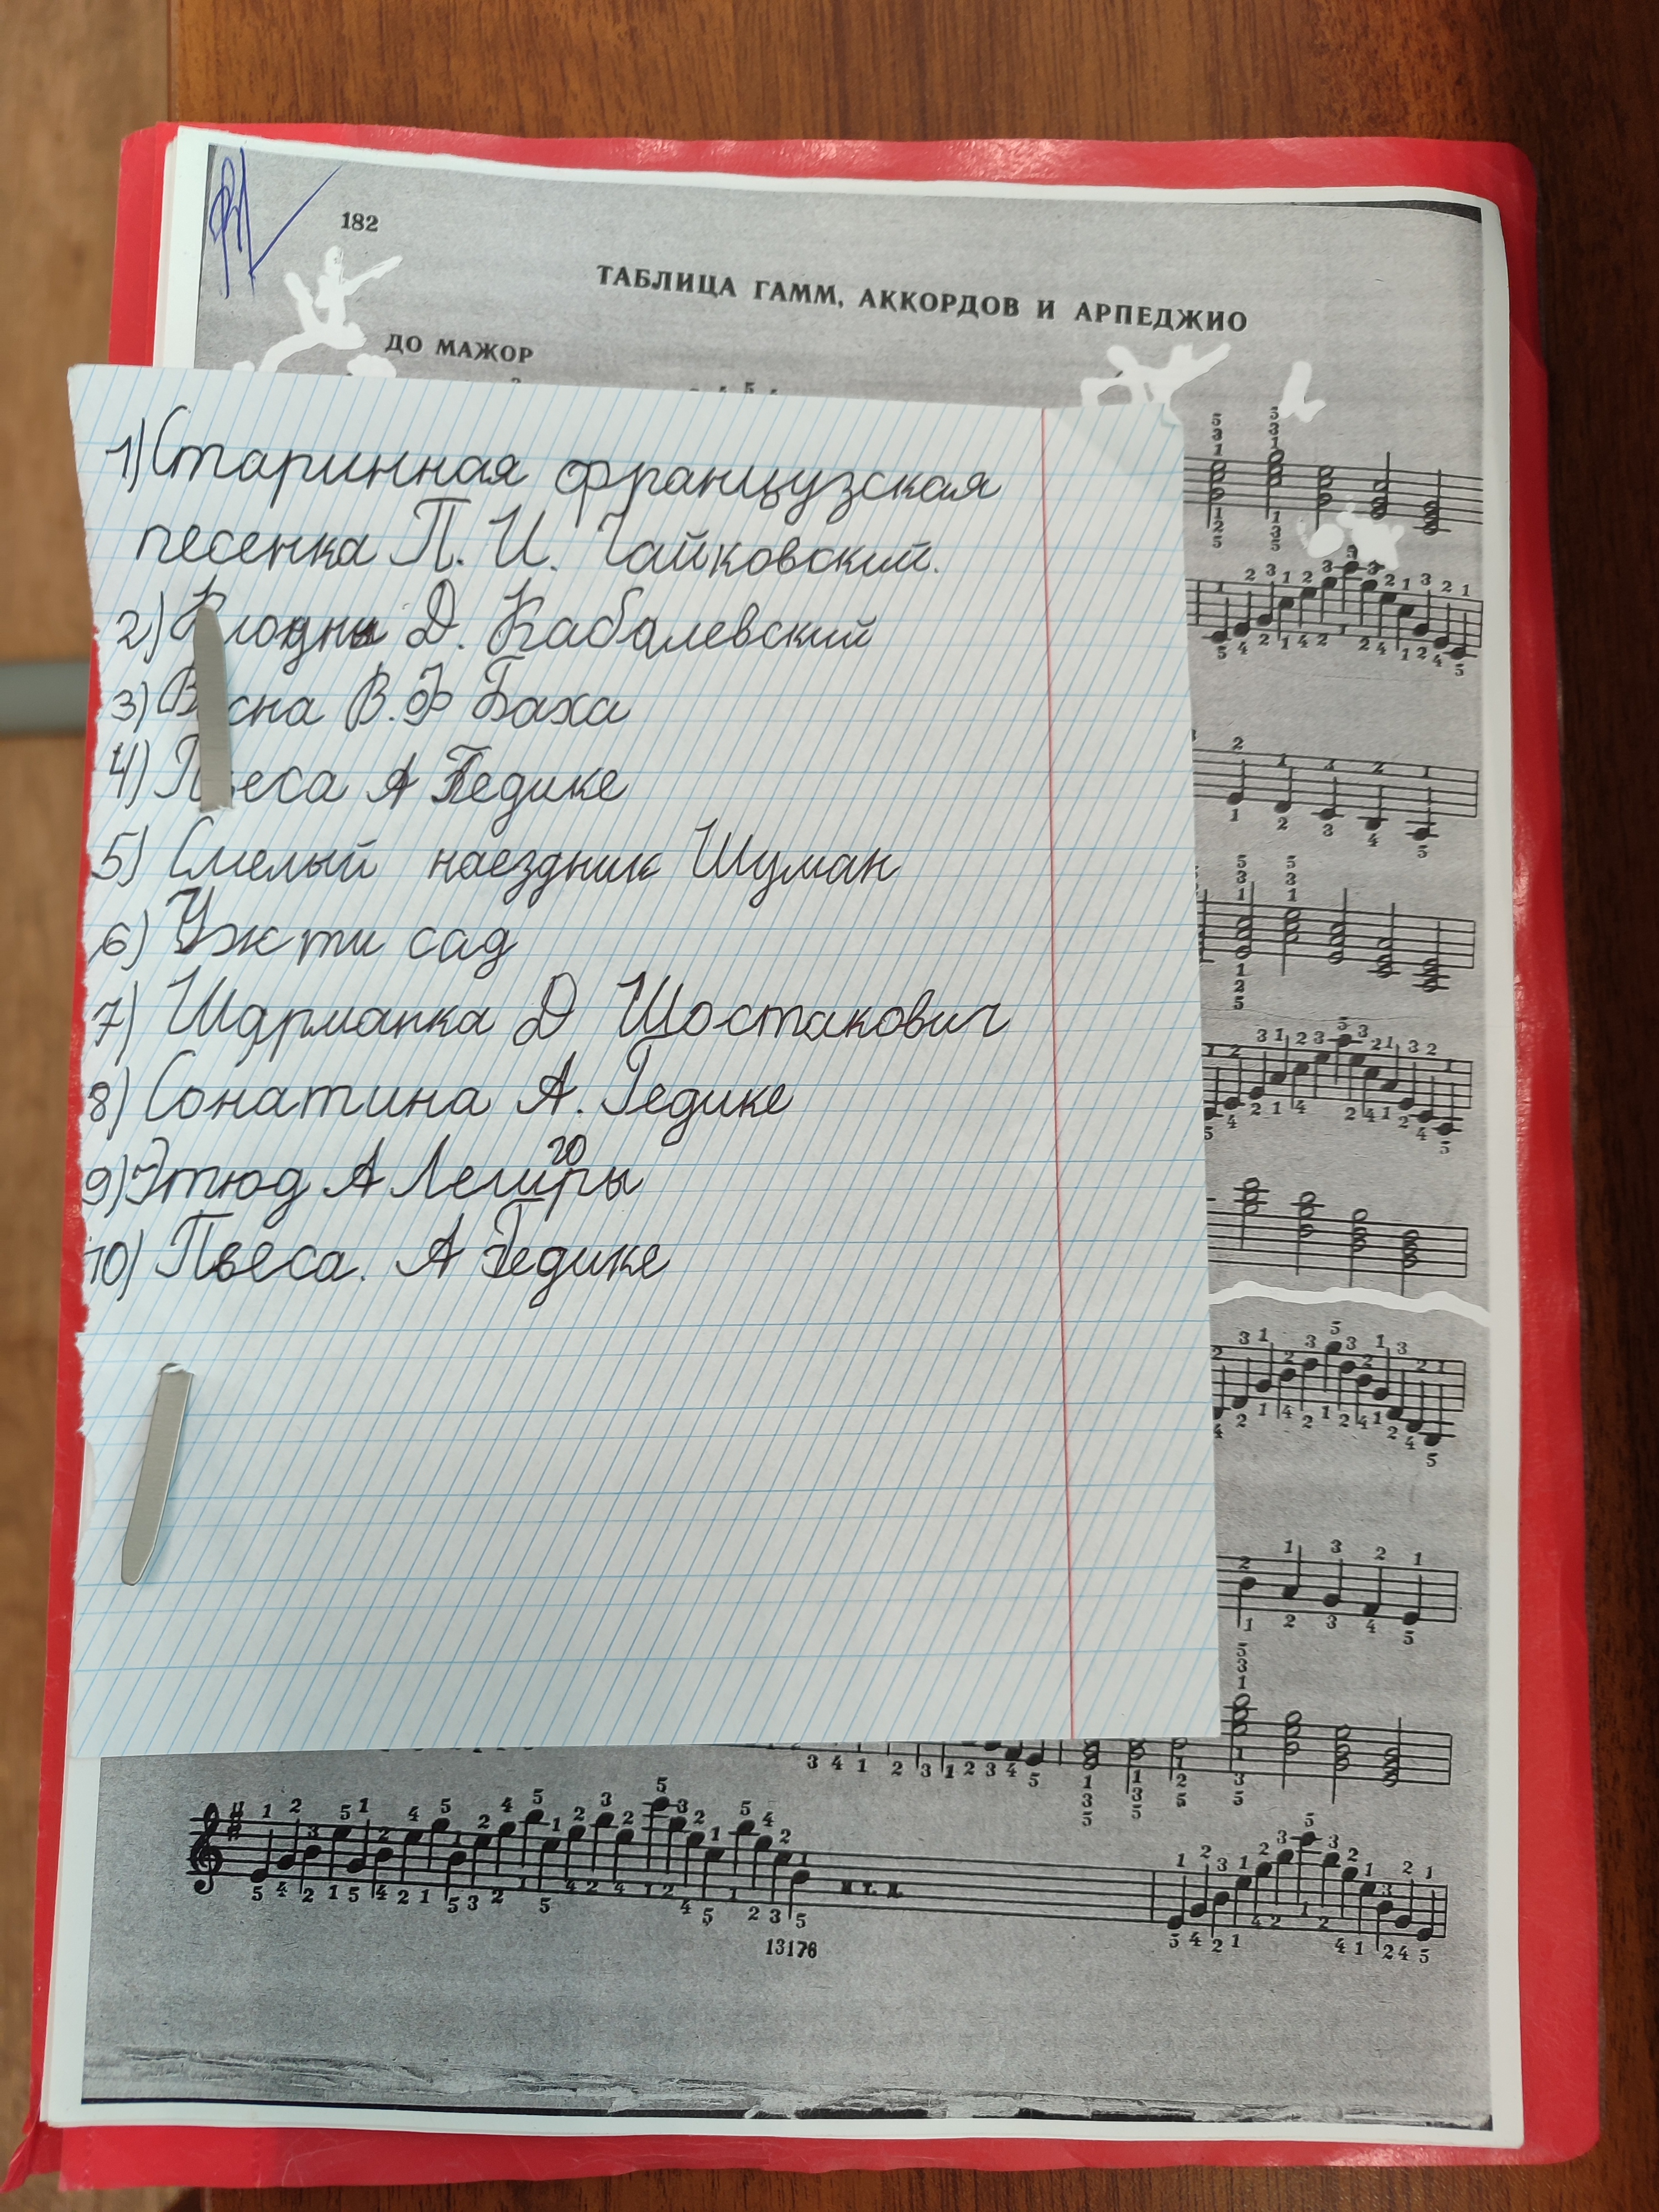 182
ТАБЛИЦА ГАММ, АККОРДОВ И АРПЕДЖИО
ДО МАЖОР
1) Старинная французская
песенка П. И. Чайковский.
2) Д. Кабалевский
3) Весна В. Ф Баха
4) Пьеса А Гедике
5) Смелый наездник Шуман
6) Уж ти сад
7) Шарманка Д Шостакович
8) Сонатина А. Гедике
9) Этюд А
10) Пьеса. А Гедике
и т. д.
13176